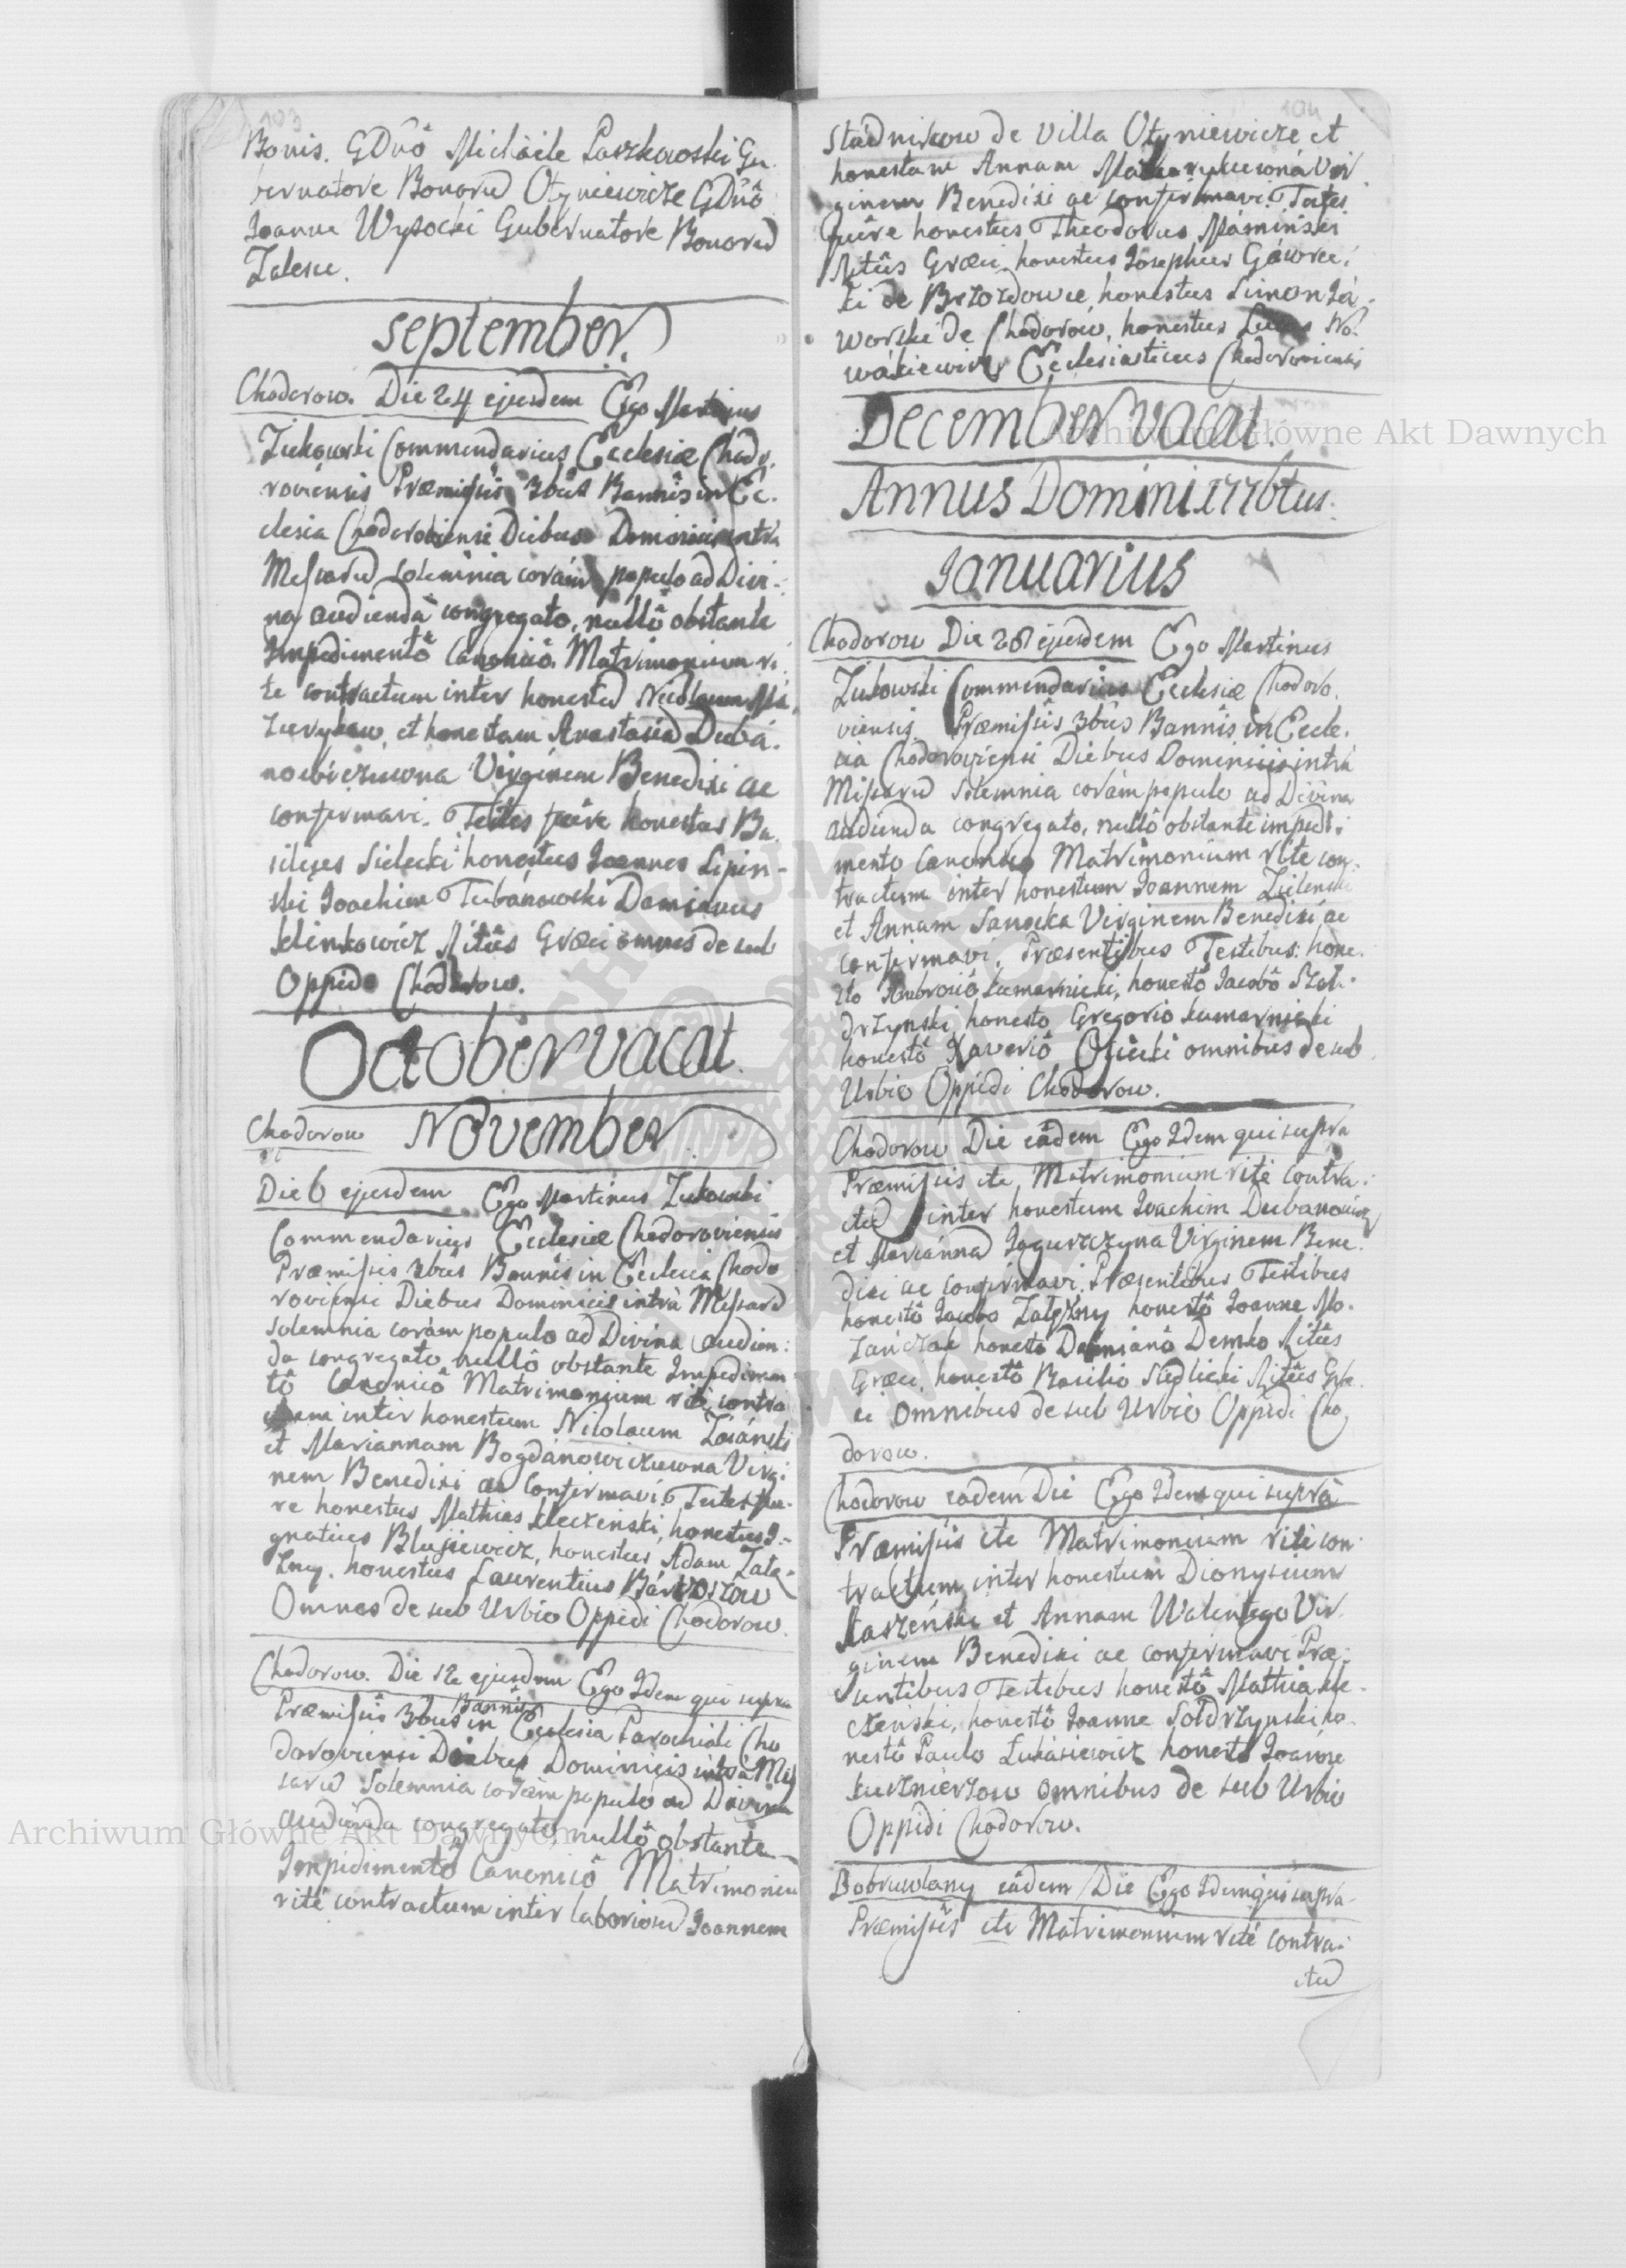 103
Bonis. GDnô Michaele Paszkowski Gu.
bernatore Bonorũ Otyniewicze GDnô
Joanne Wysocki Gubernatore Bonorũ
Zalesie.
September.
Chodorow. Die 24 ejusdem Ego Martinus
Zukowski Commendarius Ecclesiæ Chodo.
roviensis Præmissis 3bus Bannis in Ec.
clesia Chodoroviensi Diebus Dominicis intra
Missarũ solemnia coràm populo ad Divi.
na audienda congregato, nullô obstante
Impedimentô Canonicô. Matrimonium ri.
te contractum inter honestũ Nicolaum
et honestam Anastasiã Dubá.
nowiczuwna Virginem Benedixi ac
confirmavi. Testes fuêre honestus Ba.
silius Sielecki honestus Joannes Lipin-
ski Joachim Damianus
Klinkowicz Ritûs Græci omnes de sub
Oppido Chodorow.
October vacat.
Chodorow November
Die 6 ejusdem Ego Martinus Zukowski
Commendarius Ecclesiæ Chodoroviensis
Præmissis 3bus Bannis in Ecclesia Chodo
roviensi Diebus Dominicis intrà Missarũ
solemnia coràm populo ad Divina audien.
da congregato nullô obstante Impedimen
tô Canonicô Matrimonium ritè contra
ctum inter honestum Nicolaum
et Mariannam Bogdanowiczuwna Virgi
nem Benedixi ac Confirmavi. Testes fue.
re honestus Mathias Kleczenski, honestus I-
gnatius honestus Adam Zale.
zny. honestus Laurentius
Omnes de sub Urbio Oppidi Chodorow.
Chodorow. Die 12 ejusdem Ego Idem qui supra
Præmissis 3bus Bannis in Ecclesia Parochiali Cho
doroviensi Diebus Dominicis intrà Mis
sarũ Solemnia coràm populo ad Divina
audienda congregato, nullô obstante
Impidimentô Canonicô Matrimoniũ
rité contractum inter laboriosũ Joannem
104
Stadnikow de Villa Otyniewicze et
honestam Annam Vir
ginem Benedixi ac confirmavi. Testes
fuêre honestus Theodorus Maminski
Ritûs Græci honestus Josephus Gáwrec.
ki de Brzozdowce honestus Simon Ja.
worski de Chodorów, honestus Lucas No.
wákiewicz Ecclesiasticus Chodoroviensis
December vacat.
Annus Domini 1776tus.
Januarius
Chodorow Die 28 ejusdem Ego Martinus
Zukowski Commendarius Ecclesiæ Chodoro.
viensis. Præmissis 3bus Bannis in Eccle.
sia Chodoroviensi Diebus Dominicis intrà
Missarũ Solemnia coràm populo ad Divina
audienda congregato, nullô obstante impedi.
mento Canonico Matrimonium rite con.
tractum inter honestum Joannem Zielenski
et Annam Sanocka Virginem Benedixi ac
confirmavi. Præsentibus Testibus: hone.
sto Ambrosiô Kumarnicki, honestô Jacobô Szol.
drzynski honesto Gregorio Kumarnicki
honestô Xaveriô Osiecki omnibus de sub
Urbio Oppidi Chodorow.
Chodorow Die eâdem Ego Idem qui supra
Præmissis etc Matrimonium ritè contra.
ctũ inter honestum Joachim Dubanowicz
et Mariannã Jagusczyna Virginem Bene.
dixi ac confirmavi. Præsentibus Testibus
honestô Jacobo Zalęzny honestô Joanne Mo.
zánczak honesto Damianô Demko Ritûs
Græci, honestô Basilio Siedlicki Ritûs Græ.
ci Omnibus de sub Urbio Oppidi Cho
dorow.
Chodorow eadem Die Ego Idem qui suprà
Præmissis etc Matrimonium ritè con.
tractum inter honestum Dionysium
Staszenski et Annam Walentego Vir
ginem Benedixi ac confirmavi Præ.
sentibus Testibus honestô Matthia Kle.
czenski, honestô Joanne Soldrzynski ho.
nestô Paulo Lukásiewicz honestô Joanne
Kusznierzow omnibus de sub Urbio
Oppidi Chodorow.
Bobruwlany eâdem Die Ego Idem qui supra.
Præmissis etc Matrimonium rité contra.
ctũ
Archiwum Główne Akt Dawnych
Archiwum Główne Akt Dawnych